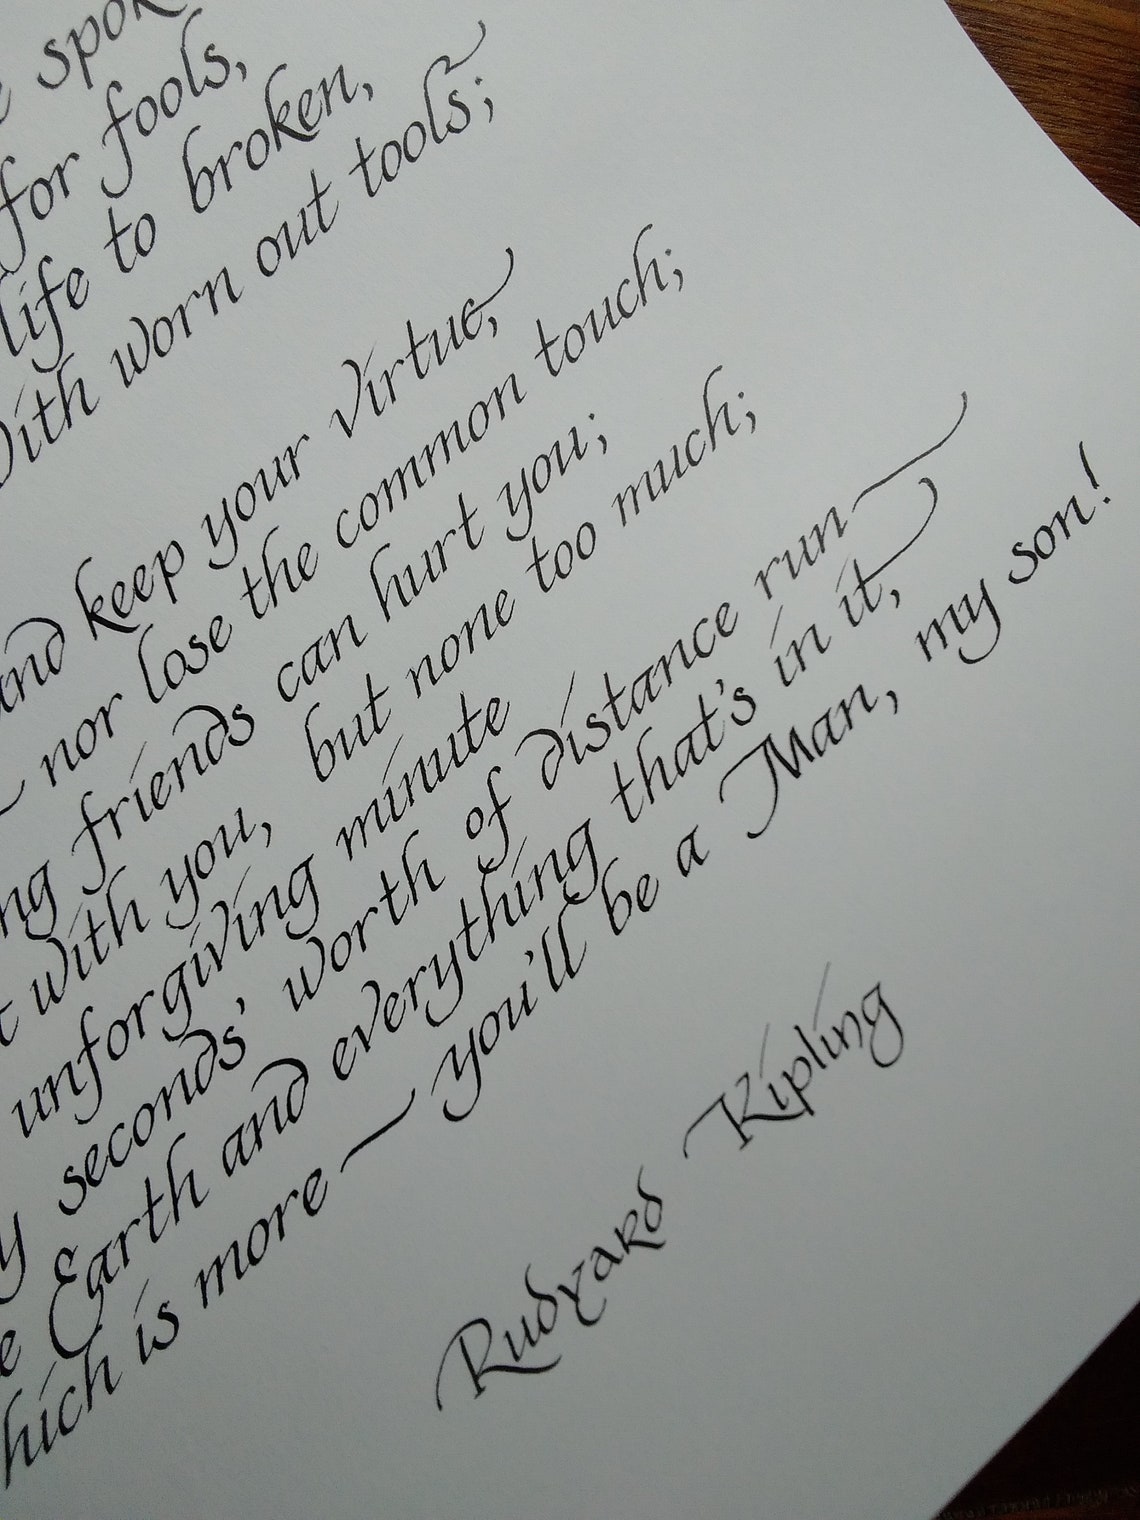 spok
for fools,
life to broken,
with worn out tools;
and keep your virtue,
nor lose the common touch;
ng friends can hurt you;
t with you, but none too much;
unforgiving minute
y seconds' worth of distance run —
e Earth and everything that's in it,
hich is more — you'll be a Man, my son!
Rudyard Kipling